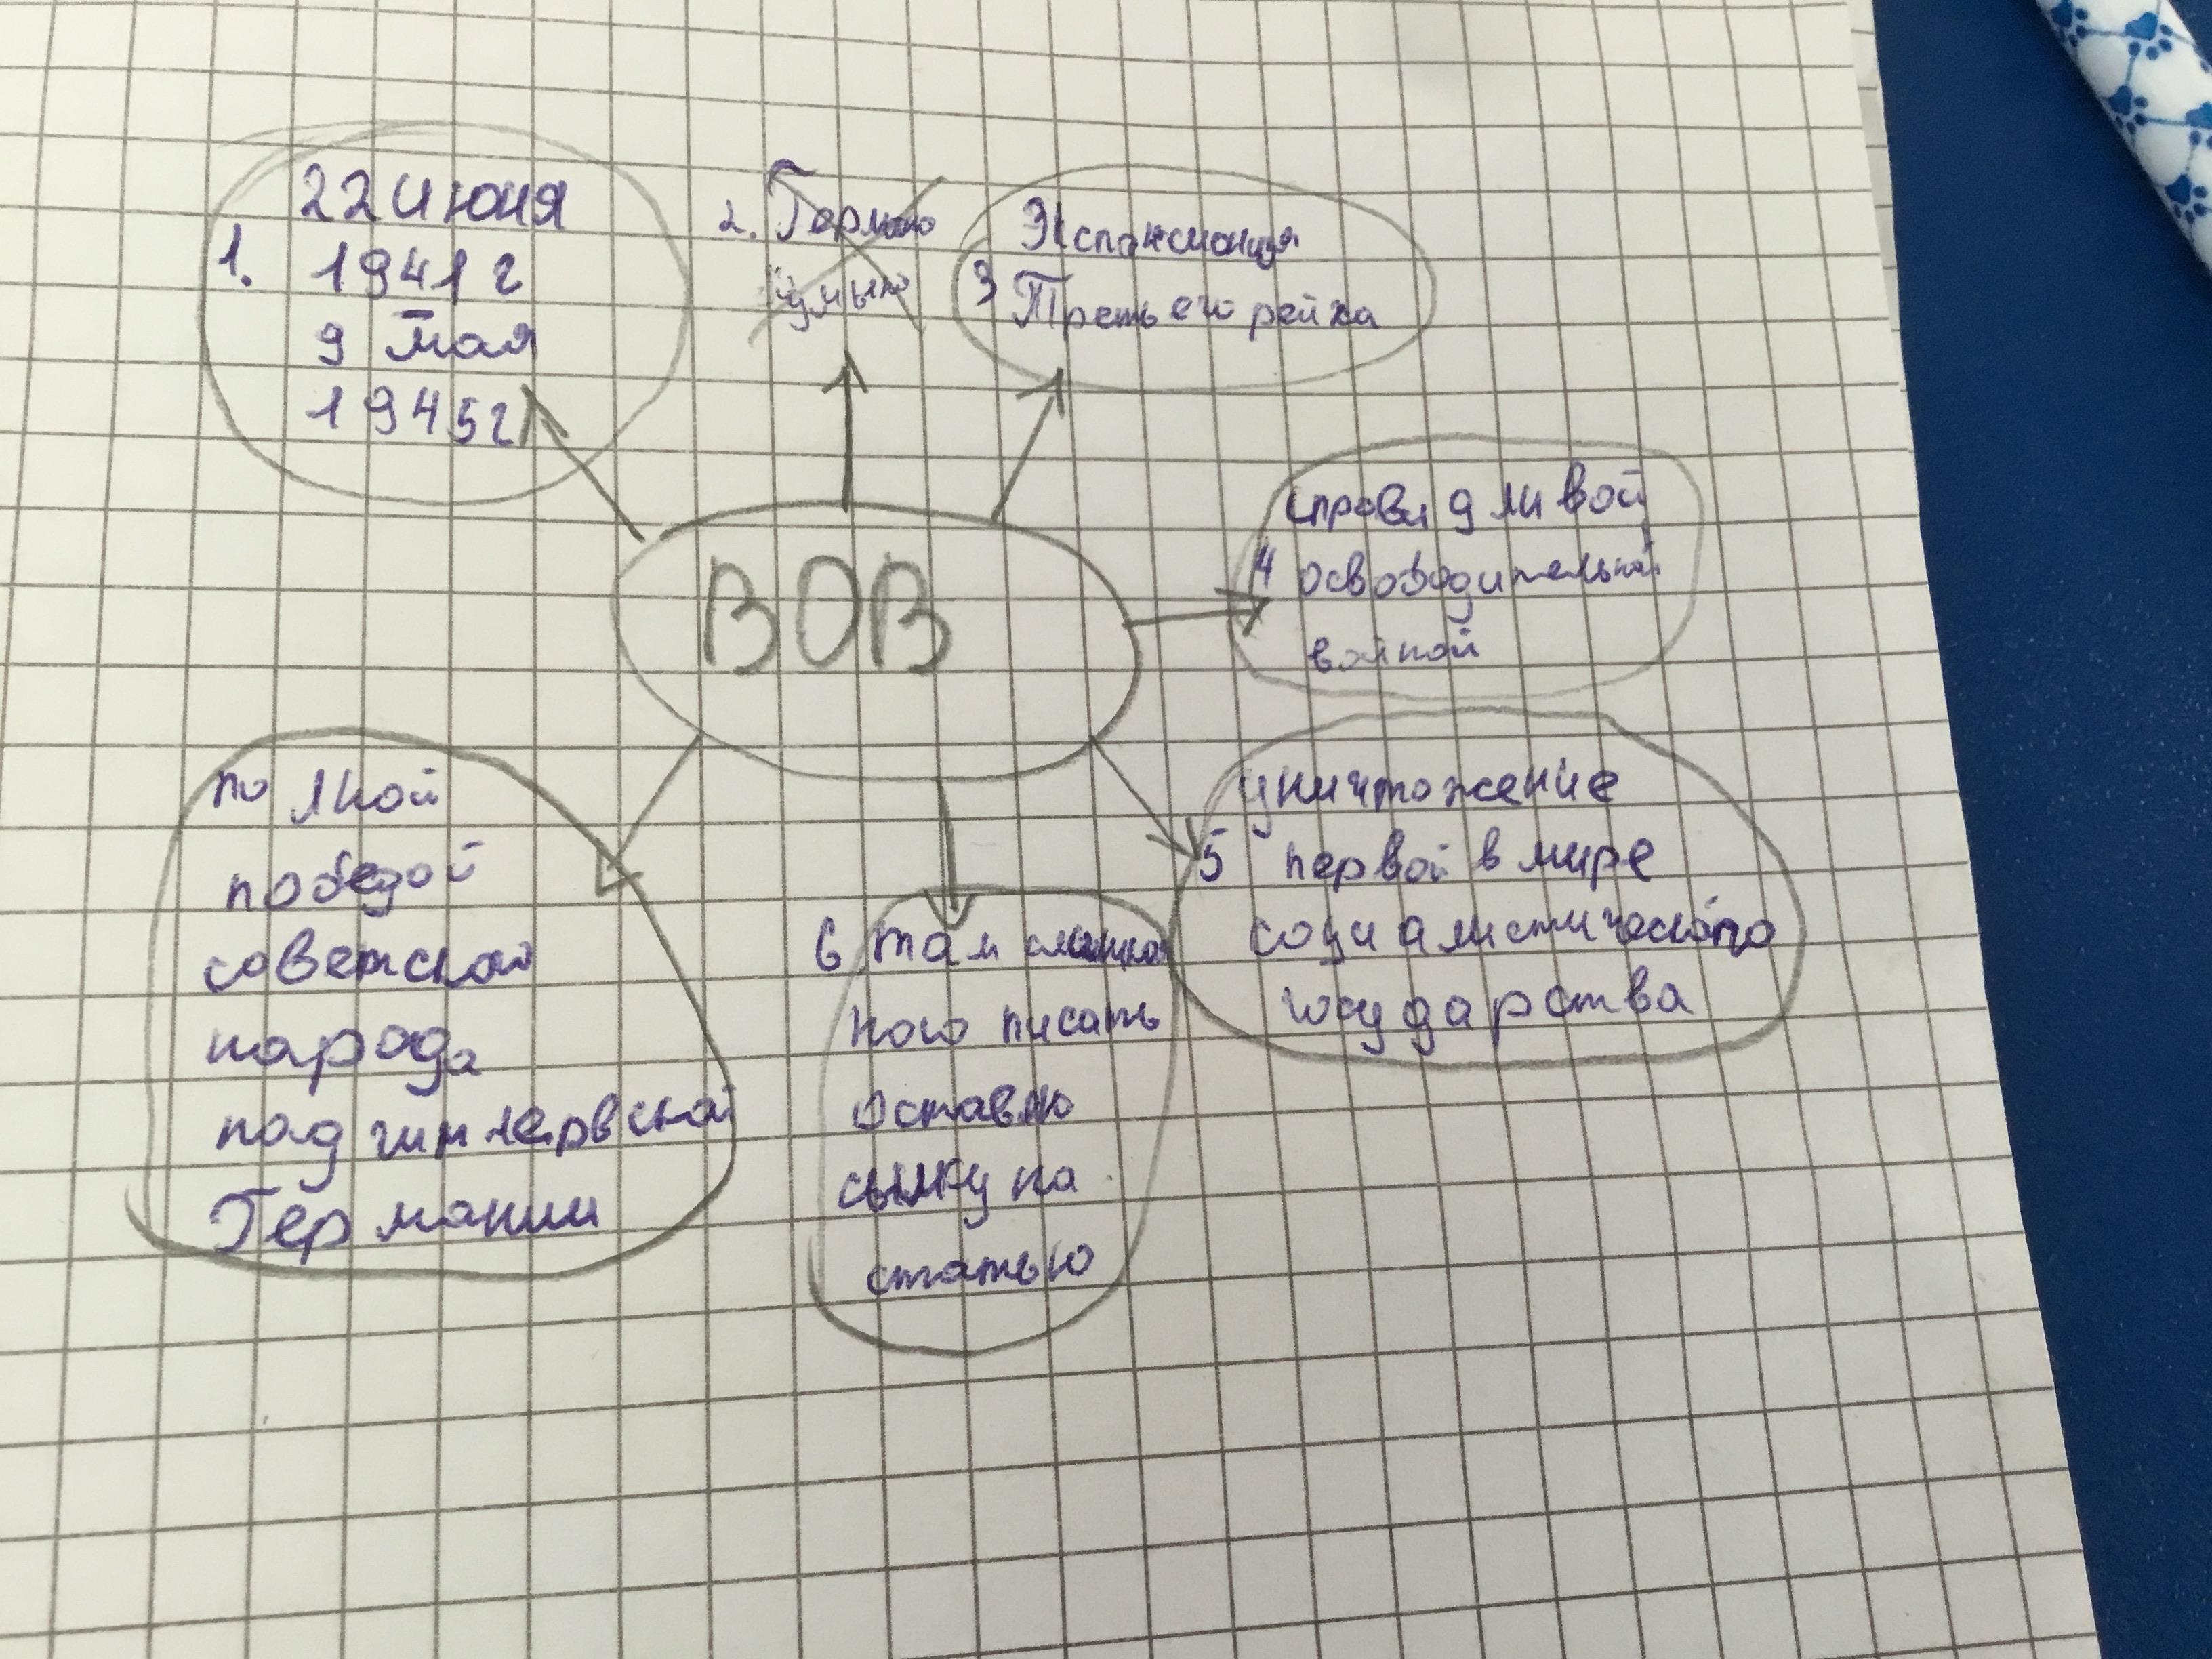 22 июня
1. 1941г
9 мая
1945г
2.
Экспансионизя
3 Третьего рейха
ВОВ
справидливой
4 освободительной
войной
уничтожение
5 первой в мире
социалистического
государства
6. там
ного писать
оставлю
сылку на
статью
полной
победой
советского
народа
над гитлервской
Германии